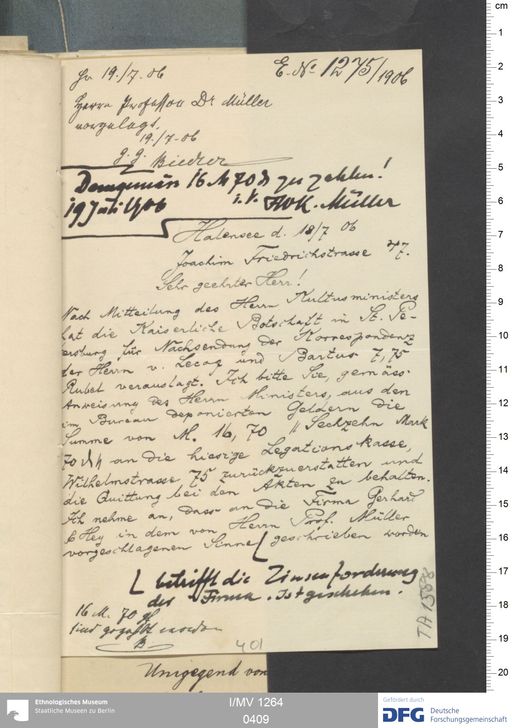 E. No 1275/1906
Gr 19./7. 06
Herrn Professor Dr Müller
vorgelegt.
19./7-06
Demgemäss 16 M 70 d zu zahlen!
19 Juli 1906 i. V. FWK. Müller
Halensee d. 18/7 06
Joachim Friedrichstrasse 47.
Sehr geehrter Herr!
Nach Mitteilung des Herrn Kultusministers
hat die Kaiserliche Botschaft in St. Pe-
ersburg für Nachsendung der Korrespondenz
der Herrn v. Lecoq und Bartus 7,75
Rubel verauslagt. Ich bitte Sie, gemäss
Anweisung des Herrn Ministers, aus den
im Bureau deponierten Geldern die
Summe von M. 16,70 „Sechzehn Mark
70 d" an die hiesige Legationskasse,
Wilhelmstrasse, 75 zurückzuerstatten und
die Quittung bei den Akten zu behalten.
Ich nehme an, dass an die Firma Gerhard
& Hey in dem von Herrn Prof. Müller
vorgeschlagenen Sinne geschrieben worden
betrifft die Zinsenforderung
der Firma. Ist geschehen.
16 M. 70 
sind gezahlt worden
B
401
TA 1588
Umgegend von
cm
1
2
3
4
5
6
7
8
9
10
11
12
13
14
15
16
17
18
19
20
Ethnologisches Museum
Staatliche Museen zu Berlin
I/MV 1264
0409
Gefördert durch
DFG Deutsche
Forschungsgemeinschaft